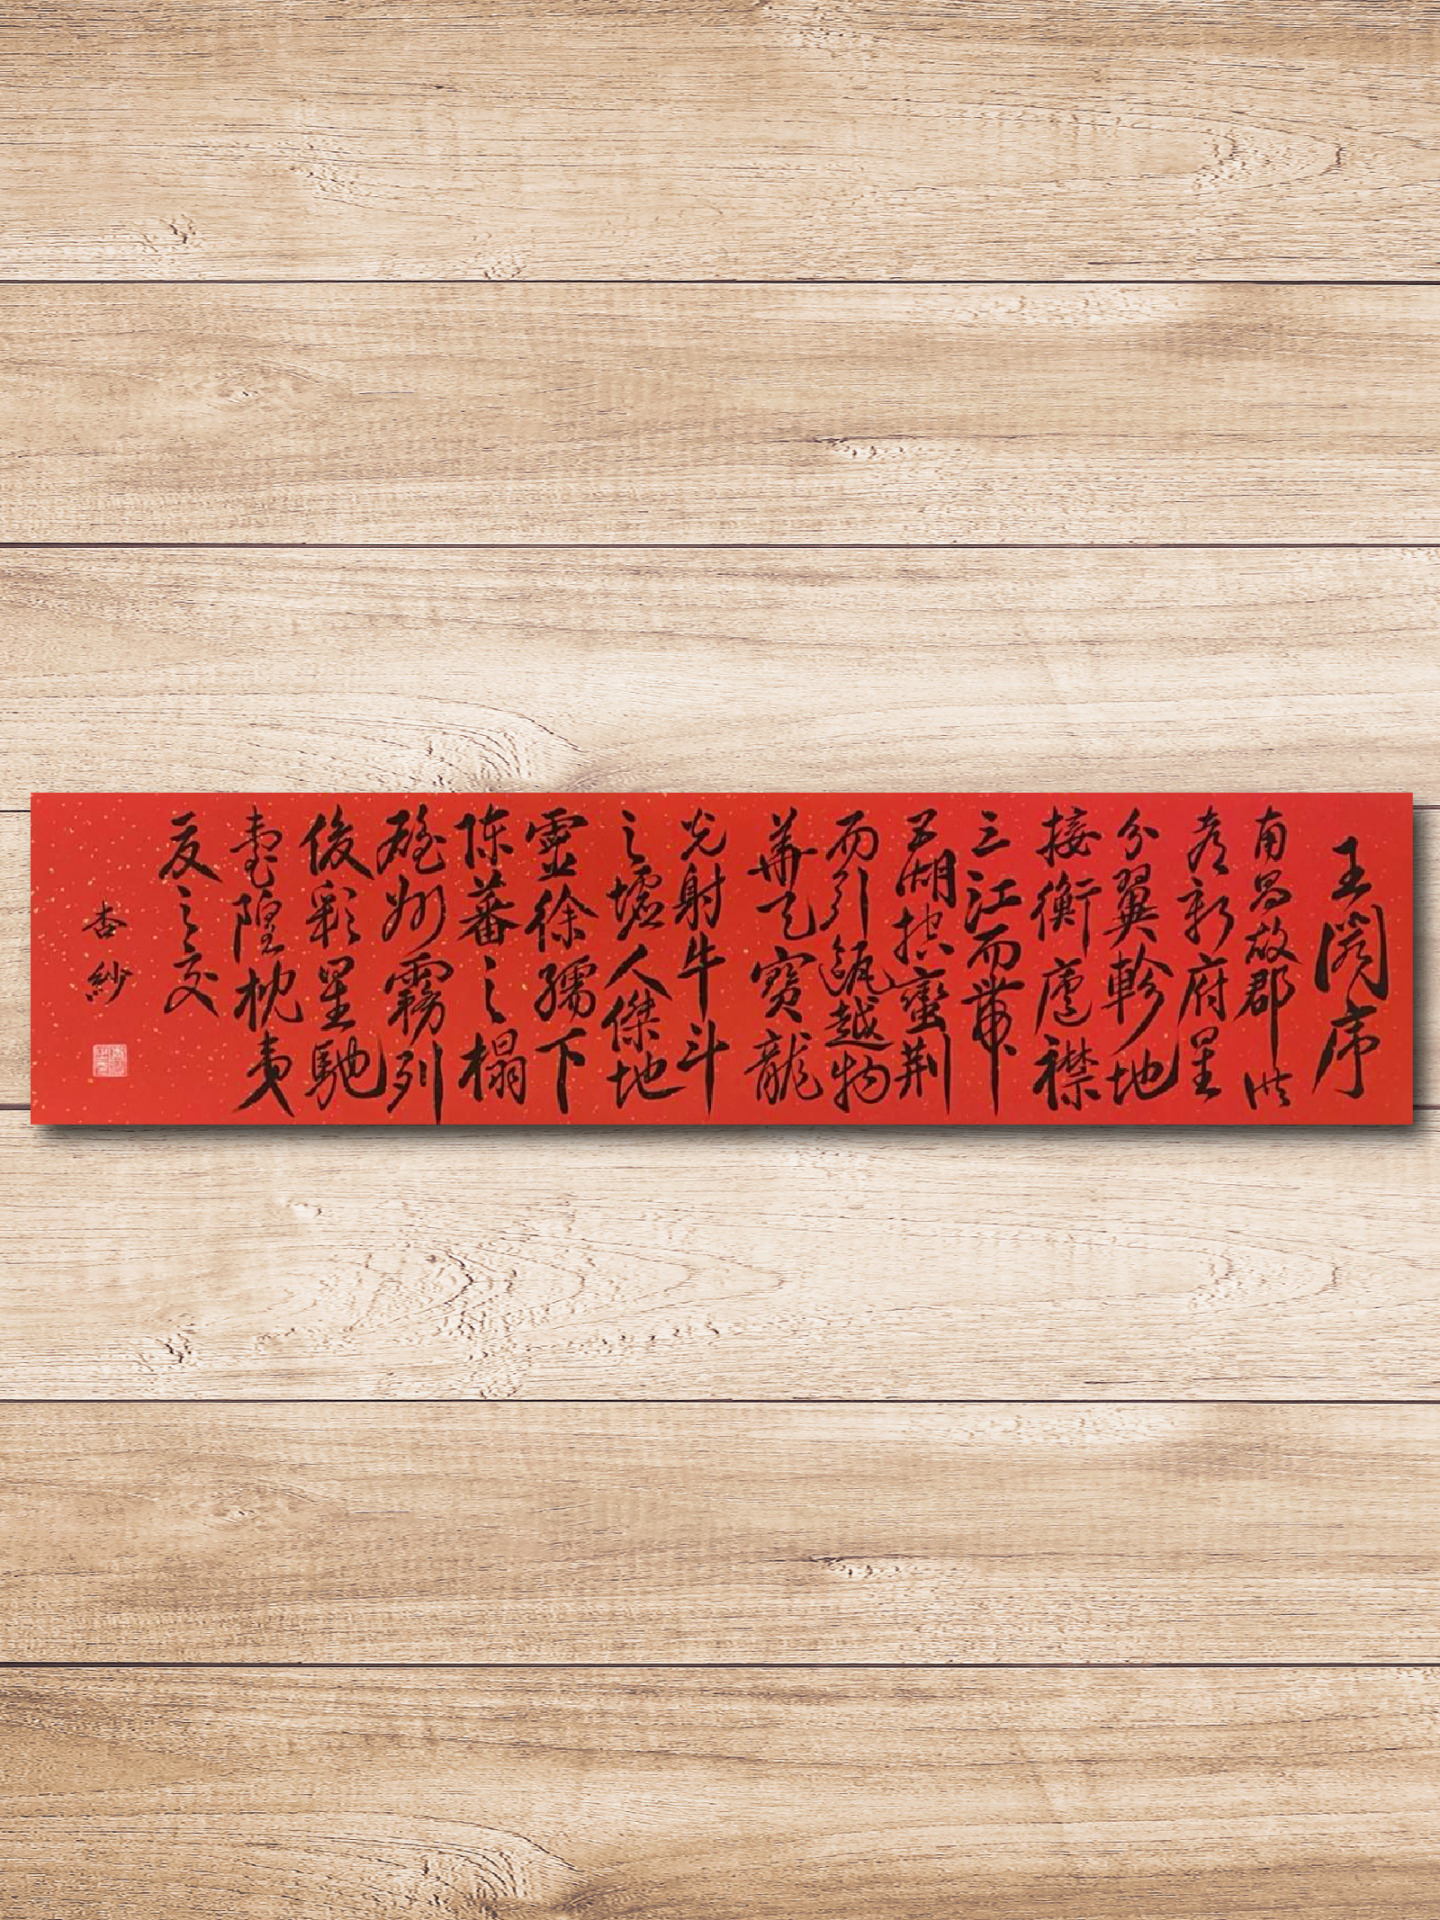 王閣序
南昌故郡洪
都新府星
分翼軫地
接衡廬襟
三江而帶
五湖控蠻荊
而引甌越物
華天寶龍
光射牛斗
之墟人傑地
靈徐孺下
陳蕃之榻
雄州霧列
俊彩星馳
臺隍枕夷
夏之交
杏紗